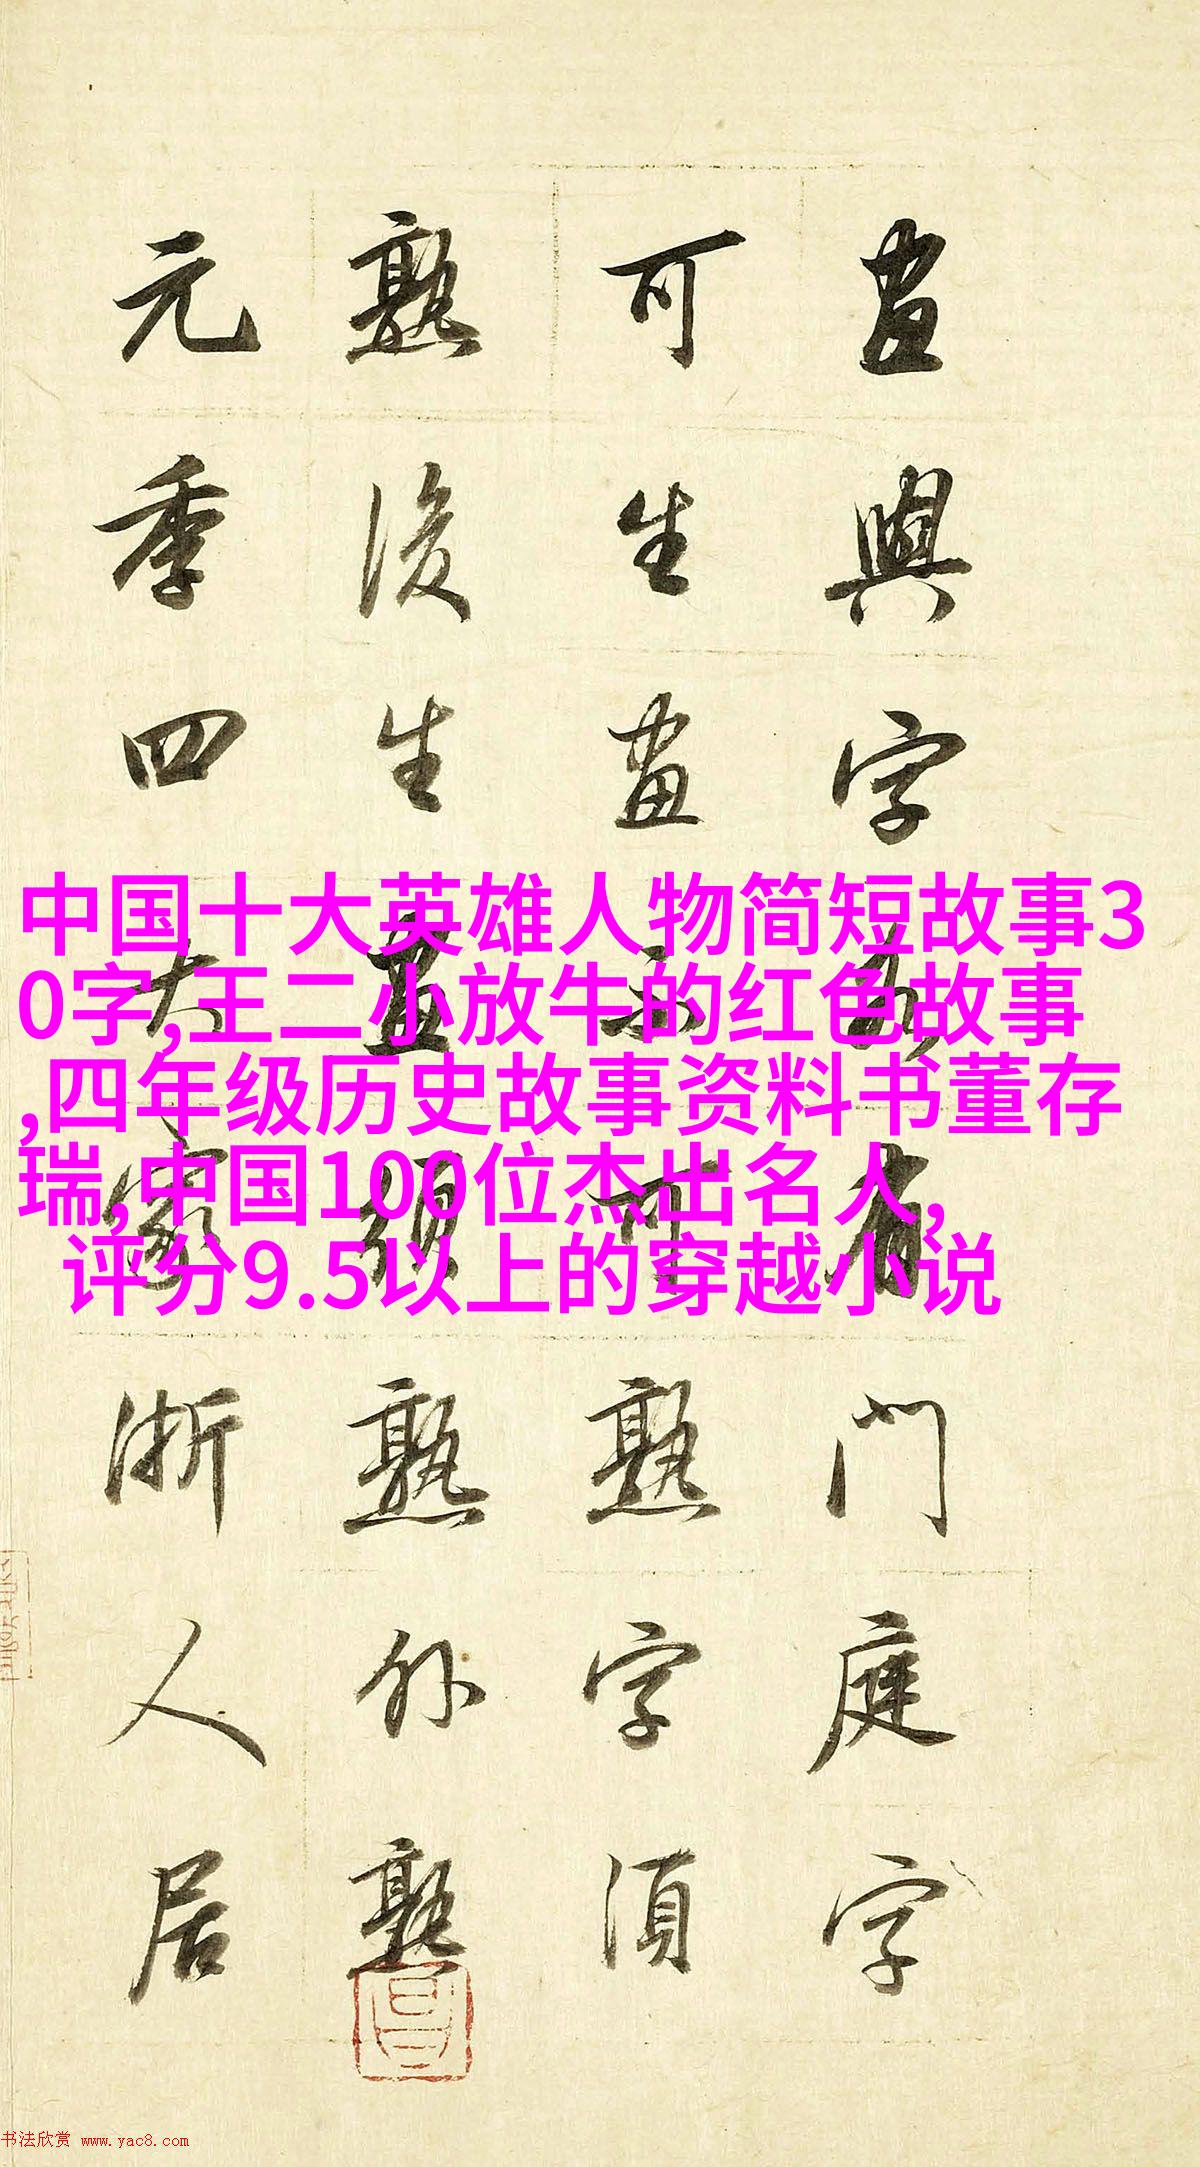 畫與字各有門庭字
可生畫不可熟字須
熟後生畫須熟外熟
元季四大家浙人居
中国十大英雄人物简短故事3
0字,王二小放牛的红色故事
,四年级历史故事资料书董存
瑞,中国100位杰出名人,
评分9.5以上的穿越小说
书法欣赏 www.yac8.com